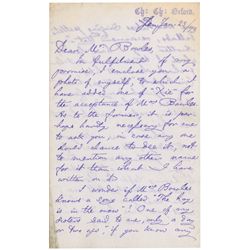 Ch: Ch: Oxford.
Jan. 22/
Dear Mrs Bowles
In fulfilment of my
promise, I enclose you a
photo of myself, to which I
have added one of "Xie" for
the acceptance of Mrs Bowles
As to the former, it is per-
haps hardly necessary for me
to ask you, in case any one
should chance to see it, not
to mention any other name
for it than what I have
written on it.
I wonder if Mrs Bowles
knows a song called "The Boy
is in the
sisters used to sing only a
or two ago, if you know any